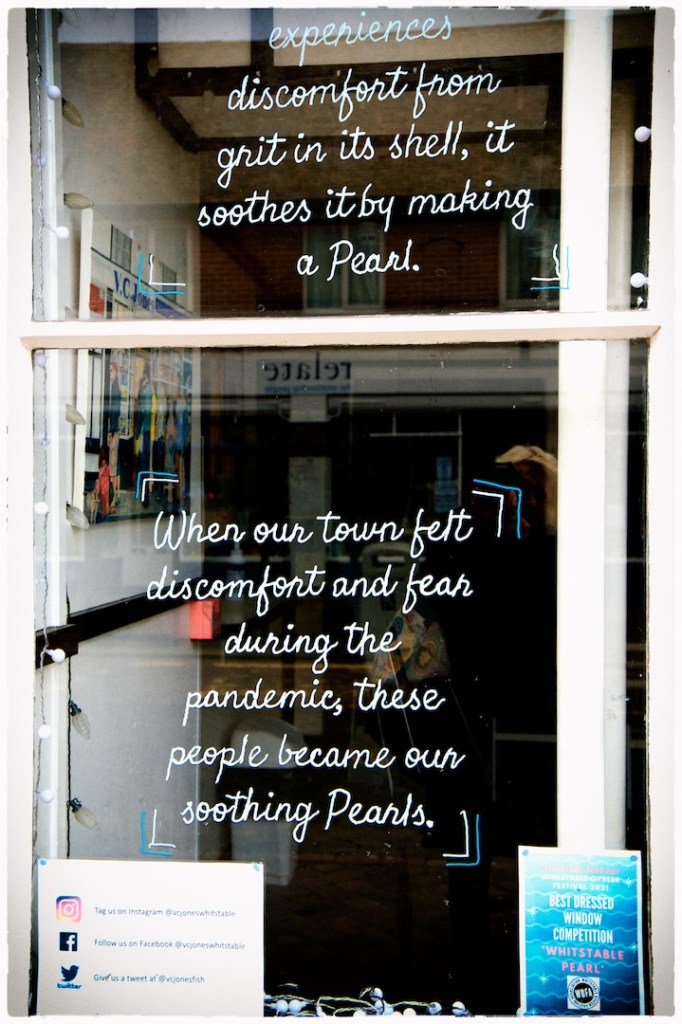 experiences
discomfort from
grit in its shell, it
soothes it by making
a Pearl.
V.C. Jones
relate
When our town felt
discomfort and fear
during the
pandemic, these
people became our
soothing Pearls.
Tag us on Instagram @vcjoneswhitstable
Follow us on Facebook @vcjoneswhitstable
twitter
Give us a tweet at @vcjonesfish
WHITSTABLE OYSTER
FESTIVAL 2021
BEST DRESSED
WINDOW
COMPETITION
'WHITSTABLE
PEARL'